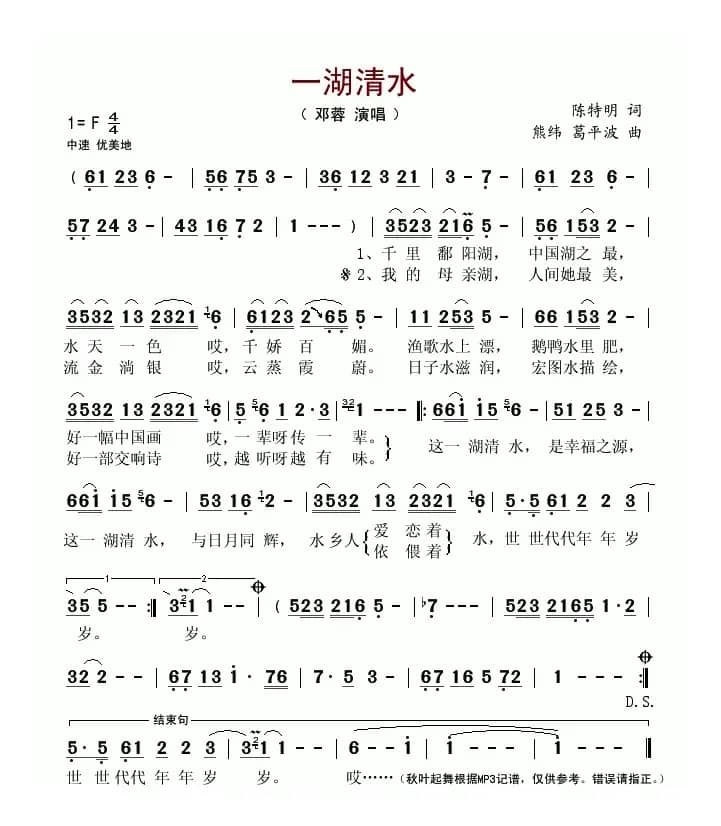 一湖清水
（ 邓蓉 演唱 ）
1= F 4/4
陈特明 词
中速 优美地
熊纬 葛平波 曲
( 61 23 6 - | 56 75 3 - | 36 12 3 21 | 3 - 7 - | 61 23 6 - |
57 24 3 - | 43 16 7 2 | 1 - - - ) | 3523 216 5 - | 56 153 2 - |
1、千 里 鄱 阳湖， 中国湖之 最，
2、我 的 母 亲湖， 人间她最 美，
3532 13 2321 6 | 6123 2 65 5 - | 11 253 5 - | 66 153 2 - |
水 天 一 色 哎，千 娇 百 媚。 渔歌水上 漂， 鹅鸭水里 肥，
流 金 淌 银 哎，云 蒸 霞 蔚。 日子水滋 润， 宏图水描 绘，
3532 13 2321 6 | 5 6 1 2·3 | 1 - - |: 66i i5 6 - | 51 25 3 - |
好一幅中国画 哎，一 辈呀传 一 辈。 这一 湖清 水， 是幸福之源，
好一部交响诗 哎，越 听呀越 有 味。
66i i5 6 - | 53 16 2 - | 3532 13 2321 6 | 5·5 61 2 2 3 |
这一 湖清 水， 与日月同 辉， 水乡人 爱 恋着 水，世 世代代年 年 岁
依 偎着
1 2
35 5 - - :| 3 1 1 - - | ( 523 216 5 - | ♭7 - - - | 523 2165 1·2 |
岁。 岁。
32 2 - - | 67 13 i· 76 | 7· 5 3 - | 67 16 5 72 | 1 - - - :|
D.S.
结束句
5· 5 61 2 2 3 | 3 1 1 - - | 6 - - i | i - - i | i - - - ‖
世 世代代 年 年 岁 岁。 哎……（秋叶起舞根据MP3记谱，仅供参考。错误请指正。）